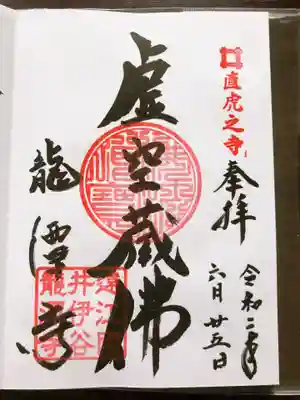 直虎之寺
奉拝
令和二年
六月廿五日
虚空藏佛
龍潭寺
遠江国
井伊谷
龍潭寺